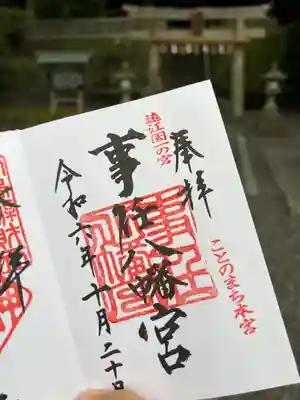 奉拝
遠江国一の宮
ことのまち本宮
事任八幡宮
令和六年十月二十日